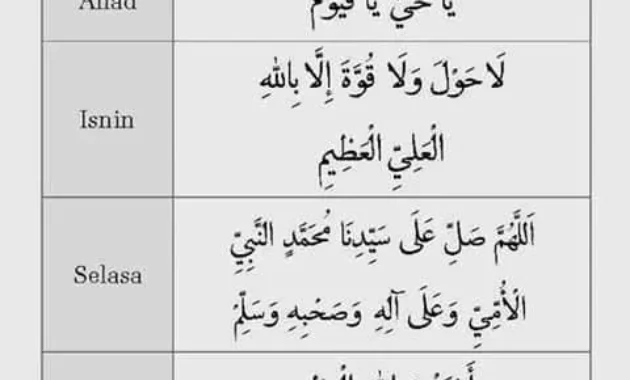 Ahad
يَا حَيُّ يَا قَيُّوْمُ
Isnin
لَا حَوْلَ وَلَا قُوَّةَ إِلَّا بِاللهِ
الْعَلِيِّ الْعَظِيمِ
Selasa
اَللَّهُمَّ صَلِّ عَلَى سَيِّدِنَا مُحَمَّدٍ النَّبِيِّ
الْأُمِّيِّ وَعَلَى آلِهِ وَصَحْبِهِ وَسَلِّمْ